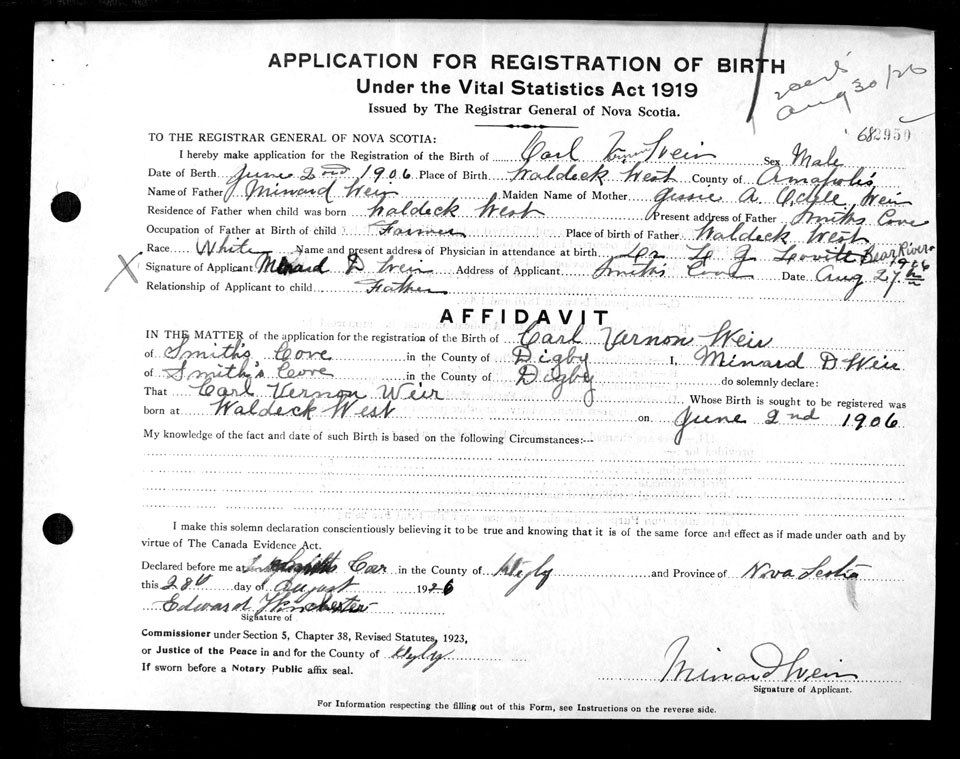 APPLICATION FOR REGISTRATION OF BIRTH
Under the Vital Statistics Act 1919
Issued by The Registrar General of Nova Scotia.
Aug 30/26
682950
TO THE REGISTRAR GENERAL OF NOVA SCOTIA:
I hereby make application for the Registration of the Birth of Carl Weir Sex Male
Date of Birth June 2nd 1906 Place of Birth Waldeck West County of Annapolis
Name of Father Minard Weir Maiden Name of Mother Jessie A. Weir
Residence of Father when child was born Waldeck West Present address of Father Smiths Cove
Occupation of Father at Birth of child Farmer Place of birth of Father Waldeck West
Race White Name and present address of Physician in attendance at birth Dr L J Lovitt Bear River
X Signature of Applicant Minard D Weir Address of Applicant Smiths Cove Date Aug 27th 1926
Relationship of Applicant to child Father
AFFIDAVIT
IN THE MATTER of the application for the registration of the Birth of Carl Vernon Weir
of Smith's Cove in the County of Digby I, Minard D Weir
of Smith's Cove in the County of Digby do solemnly declare:
That Carl Vernon Weir Whose Birth is sought to be registered was
born at Waldeck West on June 2nd 1906
My knowledge of the fact and date of such Birth is based on the following Circumstances:--
I make this solemn declaration conscientiously believing it to be true and knowing that it is of the same force and effect as if made under oath and by
virtue of The Canada Evidence Act.
Declared before me at Smiths Cove in the County of Digby and Province of Nova Scotia
this 28th day of August 1926
Edward Winchester
Signature of
Commissioner under Section 5, Chapter 38, Revised Statutes, 1923,
or Justice of the Peace in and for the County of Digby
If sworn before a Notary Public affix seal.
Minard Weir
Signature of Applicant.
For Information respecting the filling out of this Form, see Instructions on the reverse side.